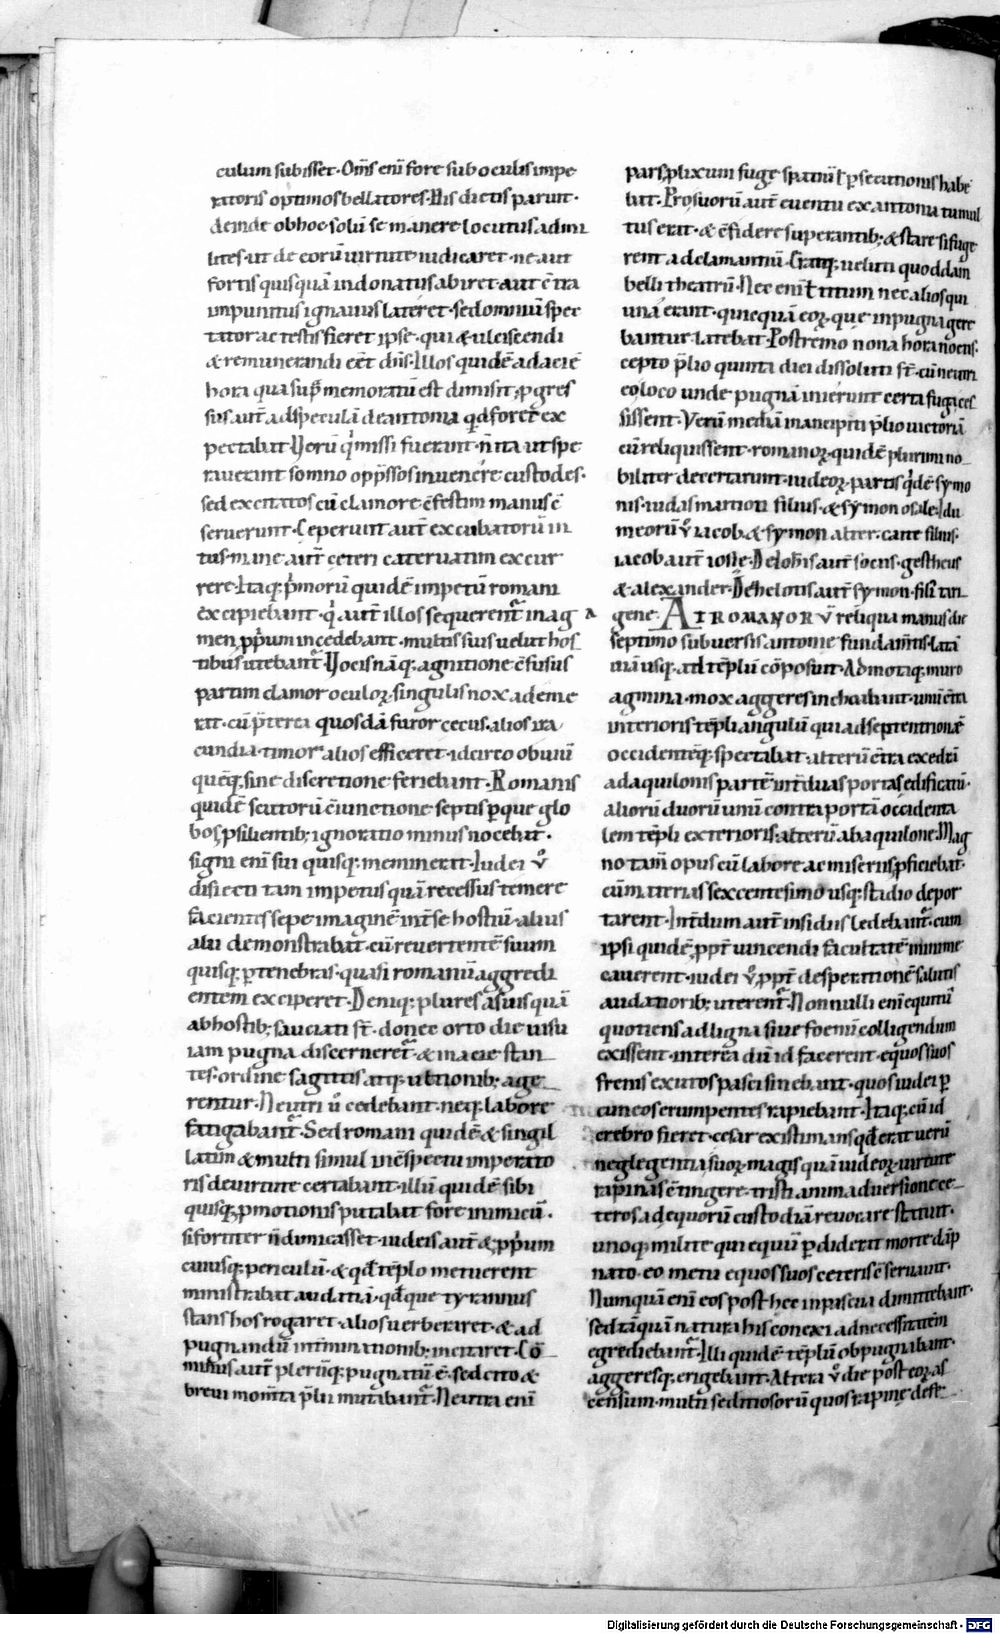 culum subisset. Om̅s eni̅ fore sub oculis impe
ratoris optimos bellatores. His dictis parum.
deinde ob hoc solu̅ se manere locutus ad mi
lites ut de eoru̅ uirtute iudicaret. ne aut
fortis quisqua̅ indonatus abiret. aut e̅tra
inpunitus ignauus lateret. sed omniu̅ spec
tator ac testis fieret ipse. qui & ulciscendi
& remunerandi eet̅ dn̅s. Illos quide̅ ad acie̅
hora qua sup̅ memoratu̅ est dimisit. ꝓgres
sus aut̅ ad specula̅ de antonia qd̅ foret ex
pectabat. Ueru̅ qͥ missi fuerant. n̅ ita ut spe
rauerant somno opp̅ssos inuenere custodes.
sed excitatos cu̅ clamore. c̅festim manus c̅
seruerunt. Ceperunt aut̅ excubatoru̅ in
tus mane aut̅ ceteri cateruatim excur
rere. Itaq; pͥmoru̅ quide̅ impetu̅ romani
excipiebant. qͥ aut̅ illos sequerent᷑ in ag
men ꝓpͥum incedebant. multi suis uelut hos
tibus utebant᷑. Uocis na̅q; agnitione̅ c̅fusus
partim clamor oculoꝝ singulis nox ademe
rat. cu̅ p̅terea quosda̅ furor cecus. alios ira
cundia. timor alios efficeret. idcirco obuiu̅
que̅q; sine discretione feriebant. Romanis
quide̅ scutoru̅ c̅iunctione septis ꝑque glo
bos ꝓsilientib; ignoratio minus nocebat.
signi eni̅ sui quisq; meminerat. Iudei ů
disiecti tam impetus qua̅ recessus temere
facientes sepe imagine̅ int̅ se hostiu̅ alius
alii demonstrabat. cu̅ reuertente̅ suum
quisq; ꝑ tenebras. quasi romanu̅ aggredi
entem exciperet. Deniq; plures a suis qua̅
ab hostib; sauciati st̅. donec orto die uisu
iam pugna discerneret᷑. & in acie stan
tes. ordine sagittis atq; ictionib; age
rentur. Neutri u̅ cedebant. neq; labore
fatigabant᷑. Sed romani quide̅ & singil
latim & multi simul in c̅spectu imperato
ris de uirtute certabant. illu̅ quide̅ sibi
quisq; ꝓmotionis putabat fore inimicu̅.
si fortiter n̅ dimicasset. iudeis aut̅ & ꝓpͥum
cuiusq; periculu̅. & qd̅ te̅plo metuerent
ministrabat audatia̅. qd̅que tyrannus
stans hos rogaret. alios uerberaret. & ad
pugnandu̅ int̅minationib; incitaret. Co̅
minus aut̅ pleru̅q; pugnatu̅ e̅. sed cito &
breui mom̅ta p̅lii mutabant᷑. Neutra eni̅
pars ꝓlixum fuge spatiu̅ t̅ ꝑsecutionis habe
bat. Pro suoru̅ aut̅ euentu ex antonia tumul
tus erat. & c̅fidere superantib; & stare si fuge
rent adclamantiu̅. Eratq; ueluti quoddam
belli theatru̅. Nec eni̅ t titum nec alios qui
una̅ erant. quicqua̅ eoꝝ que in pugna gere
bantur latebat. Postremo nona hora noctis.
cepto p̅lio quinta diei dissoluti st̅. cu̅ neutri
eo loco unde pugna̅ inierunt certa fuga ces
sissent. Veru̅ media̅ in ancipiti p̅lio uictoria̅
cu̅ reliquissent. romanoꝝ quide̅ plurimi no
biliter decertarunt. iudeoꝝ partis qͥde̅ symo
nis iudas martoti filius. & symon osaie. Idu
meoru̅ ů iacob. & symon alter. cate filius.
iacob aut̅ iosie. De ioh̅is aut̅ sociis. gestheus
& alexander. De zelotis aut̅ symon. filii tan
gene. AT ROMANORU̅ reliqua manus die
septimo subuersis antonie fundam̅tis. lata̅
uia̅ usq; ad te̅plu̅ co̅posuit. Admotaq; muro
agmina. mox aggeres inchoabant. unu̅ c̅tra
interioris te̅pli angulu̅ qui ad septentrione̅ &
occidente̅q; spectabat. alteru̅ c̅tra exedra̅
ad aquilonis parte̅ int̅ duas portas edificata̅.
alioru̅ duoru̅ unu̅ contra porta̅ occidenta
lem te̅pli exterioris. alteru̅ ab aquilone. Mag
no tam̅ opus cu̅ labore ac miseriis ꝓficiebat.
cu̅ materias sex centesimo usq; stadio depor
tarent. Int̅dum aut̅ insidiis ledebant᷑. cum
ipsi quide̅ ꝓpt̅ uincendi facultate̅ minime
cauerent. iudei ů ꝓpt̅ desperatione̅ salutis
audatiorib; uterent᷑. Nonnulli eni̅ equitu̅
quotiens ad ligna siue foenu̅ colligendum
exissent. interea du̅ id facerent. equos suos
frenis exutos pasci sinebant. quos iudei ꝑ
cuneos erumpentes rapiebant. Itaq; cu̅ id
crebro fieret. cesar existimans qd̅ erat ueru̅
neglegentia suoꝝ magis qua̅ iudeoꝝ uirtute
rapinas c̅tingere. tristi animaduersione ce
teros ad equoru̅ custodia̅ reuocare statuit.
unoq; milite qui equu̅ ꝑdiderat morte da̅p
nato. eo metu equos suos ceteris c̅seruauit.
Numqua̅ eni̅ eos post hec in pascua dimittebant.
sed ta̅qua̅ natura his conexi ad necessitatem
egrediebant᷑. Illi quide̅ te̅plu̅ obpugnabant.
aggeresq; erigebant. Altera ů die post eoꝝ as
censum. multi seditiosoru̅ quos rapinę defe
Digitalisierung gefördert durch die Deutsche Forschungsgemeinschaft - DFG